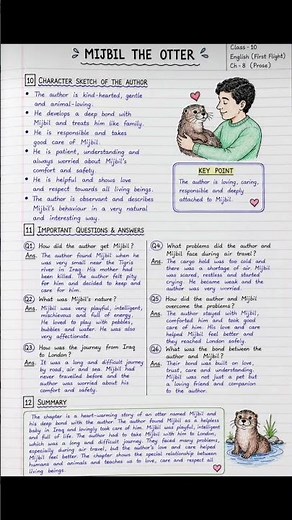 MIJBIL THE OTTER
Class - 10
English (First Flight)
Ch - 8 (Prose)
10 CHARACTER SKETCH OF THE AUTHOR
• The author is kind-hearted, gentle
and animal-loving.
• He develops a deep bond with
Mijbil and treats him like family.
• He is responsible and takes
good care of Mijbil.
• He is patient, understanding and
always worried about Mijbil's
comfort and safety.
• He is helpful and shows love
and respect towards all living beings.
• The author is observant and describes
Mijbil's behaviour in a very natural
and interesting way.
KEY POINT
The author is loving, caring,
responsible and deeply
attached to Mijbil.
11 IMPORTANT QUESTIONS & ANSWERS
Q1 How did the author get Mijbil?
Ans. The author found Mijbil when he
was very small near the Tigris
river in Iraq. His mother had
been killed. The author felt pity
for him and decided to keep and
care for him.
Q2 What was Mijbil's nature?
Ans. Mijbil was very playful, intelligent,
mischievous and full of energy.
He loved to play with pebbles,
bubbles and water. He was also
very affectionate.
Q3 How was the journey from Iraq
to London?
Ans. It was a long and difficult journey
by road, air and sea. Mijbil had
never travelled before and the
author was worried about his
comfort and safety.
Q4 What problems did the author and
Mijbil face during air travel?
Ans. The cargo hold was too cold and
there was a shortage of air. Mijbil
was scared, restless and started
crying. He became weak and the
author was very worried.
Q5 How did the author and Mijbil
overcome the problems?
Ans. The author stayed with Mijbil,
comforted him and took good
care of him. His love and care
helped Mijbil feel better and
they reached London safely.
Q6 What was the bond between the
author and Mijbil?
Ans. Their bond was built on love,
trust, care and understanding.
Mijbil was not just a pet but
a loving friend and companion
to the author.
12 SUMMARY
The chapter is a heart-warming story of an otter named Mijbil and
his deep bond with the author. The author found Mijbil as a helpless
baby in Iraq and lovingly took care of him. Mijbil was playful, intelligent
and full of life. The author had to take Mijbil with him to London,
which was a long and difficult journey. They faced many problems,
especially during air travel, but the author's love and care helped
Mijbil feel better. The chapter shows the special relationship between
humans and animals and teaches us to love, care and respect all
living beings.